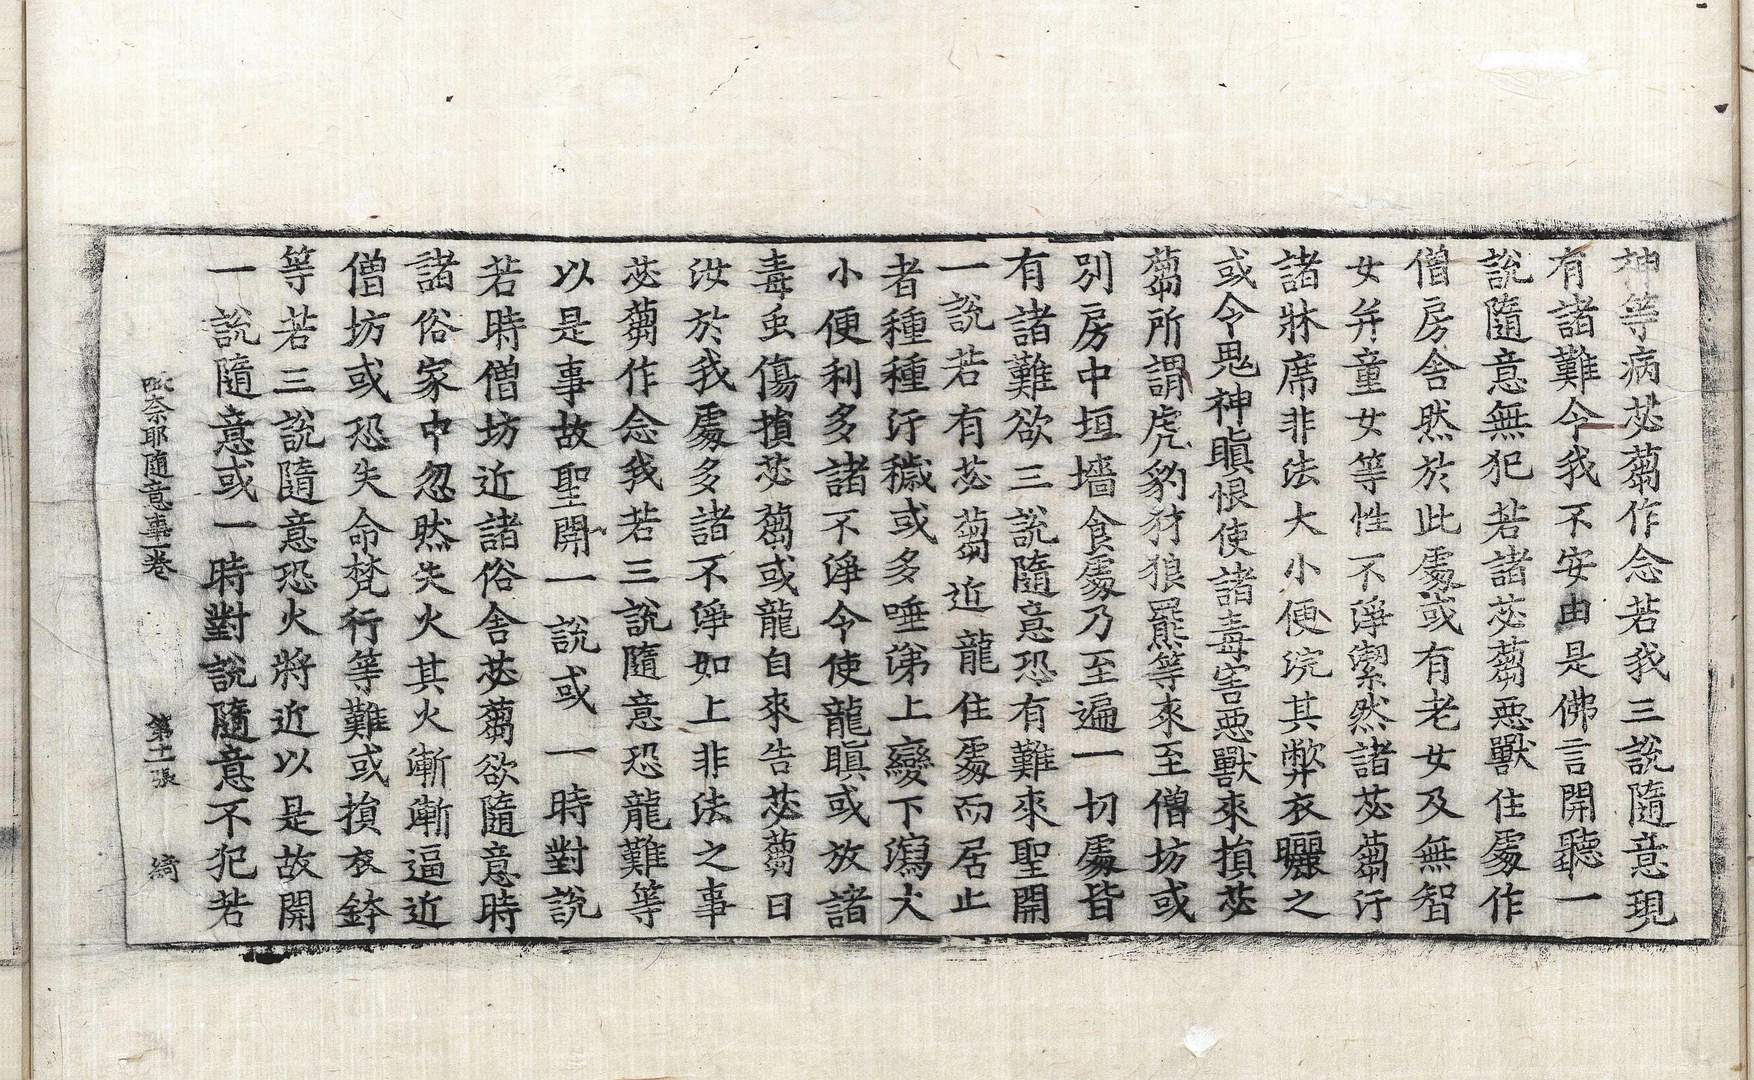 神等病苾蒭作念若我三說隨意現
有諸難令我不安由是佛言開聽一
說隨意無犯若諸苾蒭惡獸住處作
僧房舍然於此處或有老女及無智
女并童女等性不淨潔然諸苾蒭行
諸牀席非法大小便浣其弊衣曬之
或令鬼神瞋恨使諸毒害惡獸來損苾
蒭所謂虎豹犲狼羆等來至僧坊或
別房中垣墻食處乃至遍一切處皆
有諸難欲三說隨意恐有難來聖開
一說若有苾蒭近龍住處而居止
者種種汙穢或多唾涕上變下瀉大
小便利多諸不淨令使龍瞋或放諸
毒虫傷損苾蒭或龍自來告苾蒭曰
汝於我處多諸不淨如上非法之事
苾蒭作念我若三說隨意恐龍難等
以是事故聖開一說或一時對說
若時僧坊近諸俗舍苾蒭欲隨意時
諸俗家中忽然失火其火漸漸逼近
僧坊或恐失命梵行等難或損衣鉢
等若三說隨意恐火將近以是故開
一說隨意或一時對說隨意不犯若
毗奈耶隨意事一卷 第十一張 綺